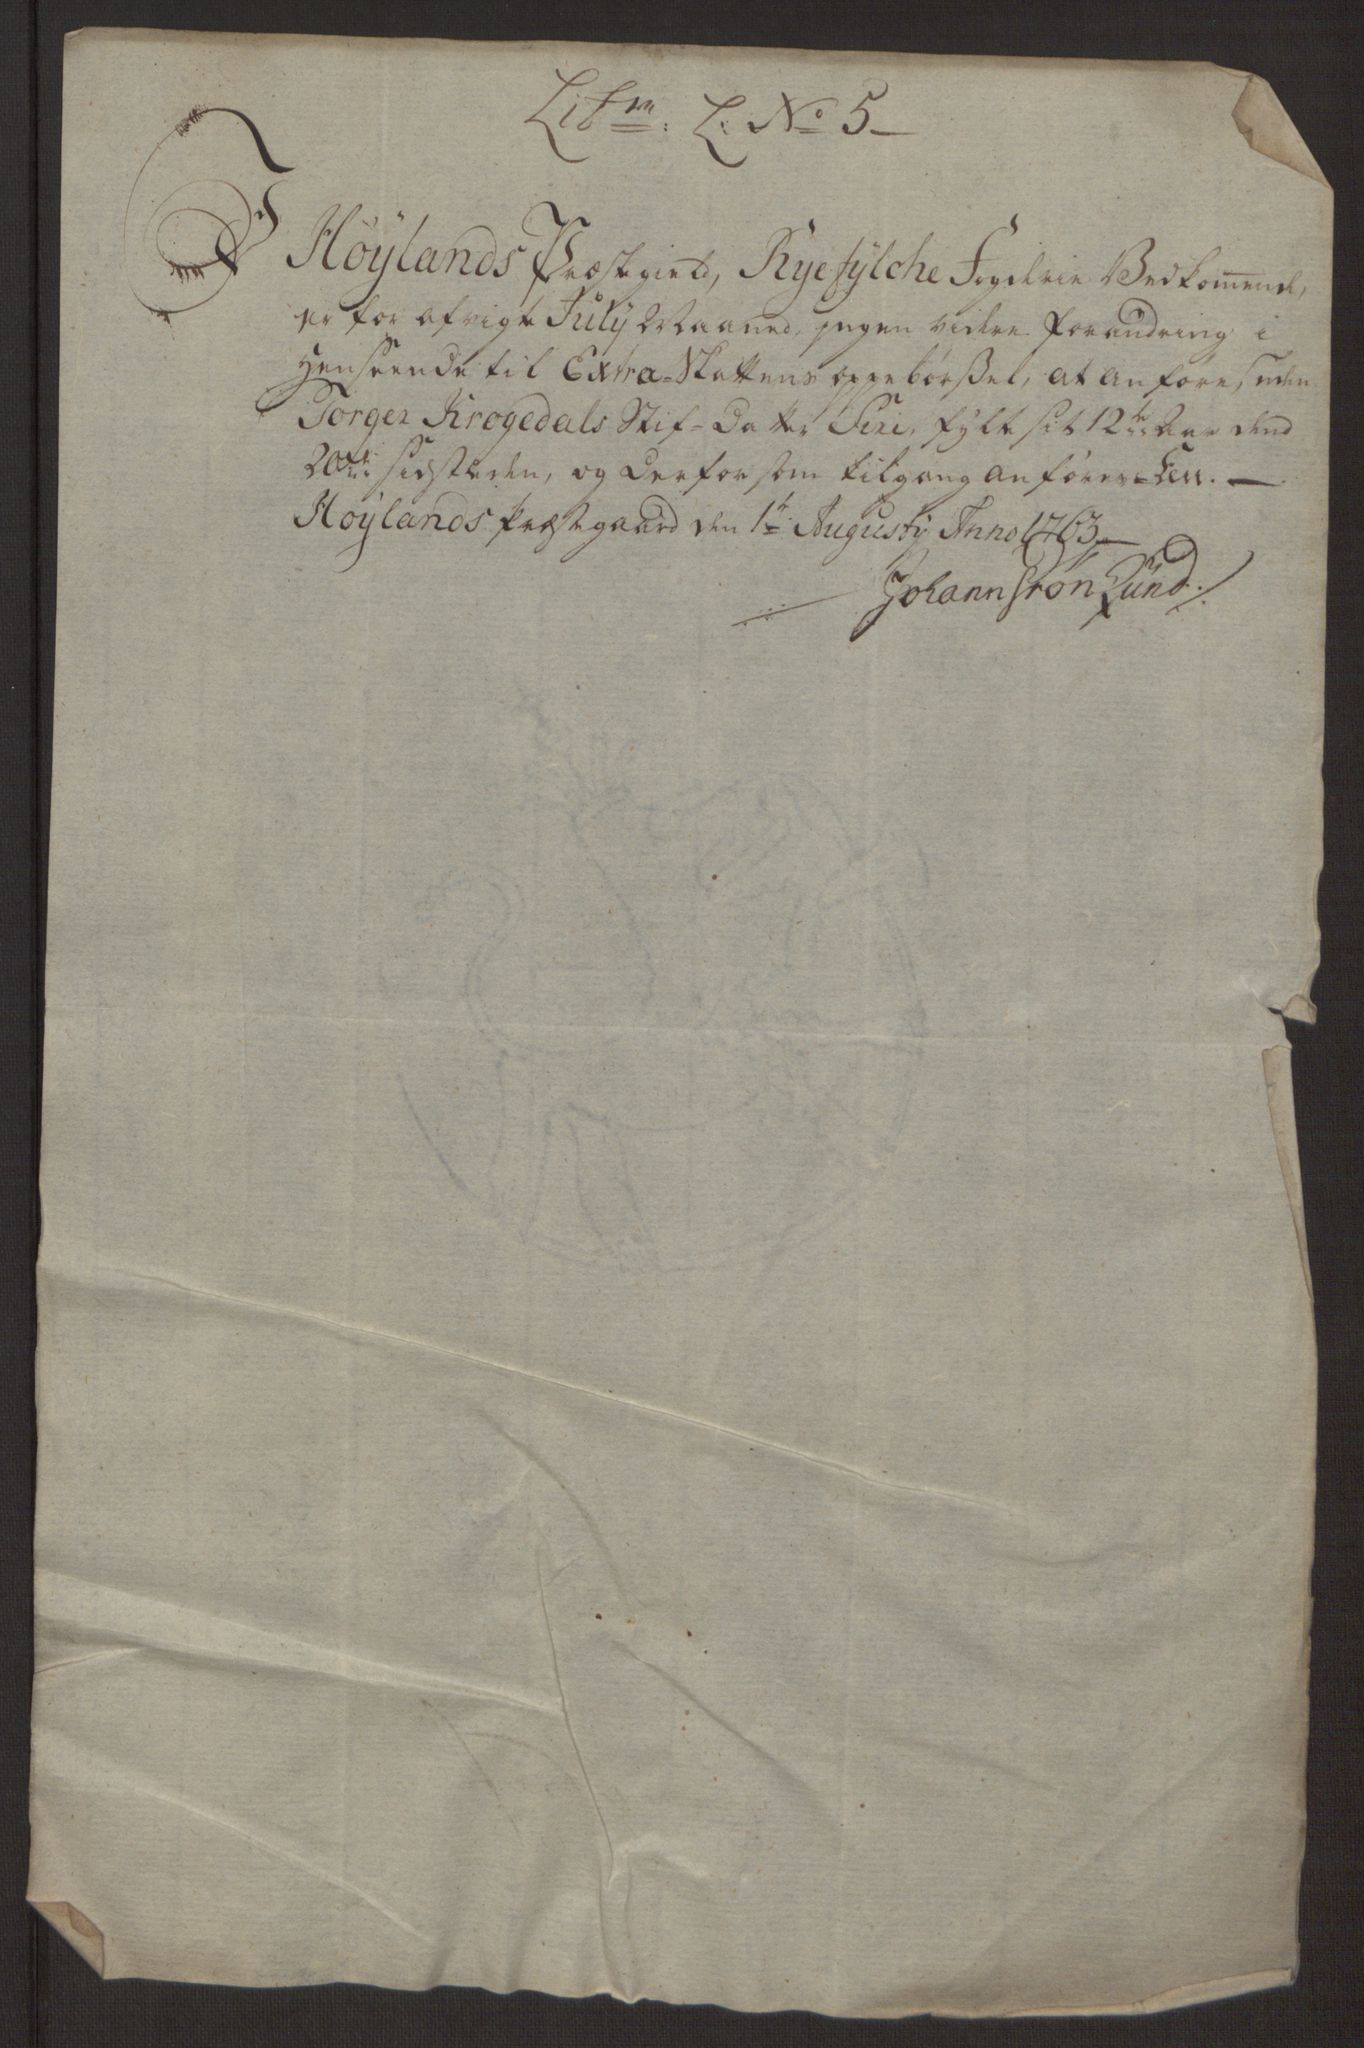 Litr: L: No 5
I Höylands Præstgield, Ryefylche Fogderie Vedkom̅ende,
er for afvigte July Maaned ingen videre Forandring i
Henseende til Extra-Skattens oppebørßel, at anføre, uden
Torger Krogedals Stif-Datter Siri, fylt sit 12te Aar dend
20de sidstleden, og derfor som tilgang anføres
Höylands Præstegaard den 1te Augusty Anno 1763
Johann Grøn Lund